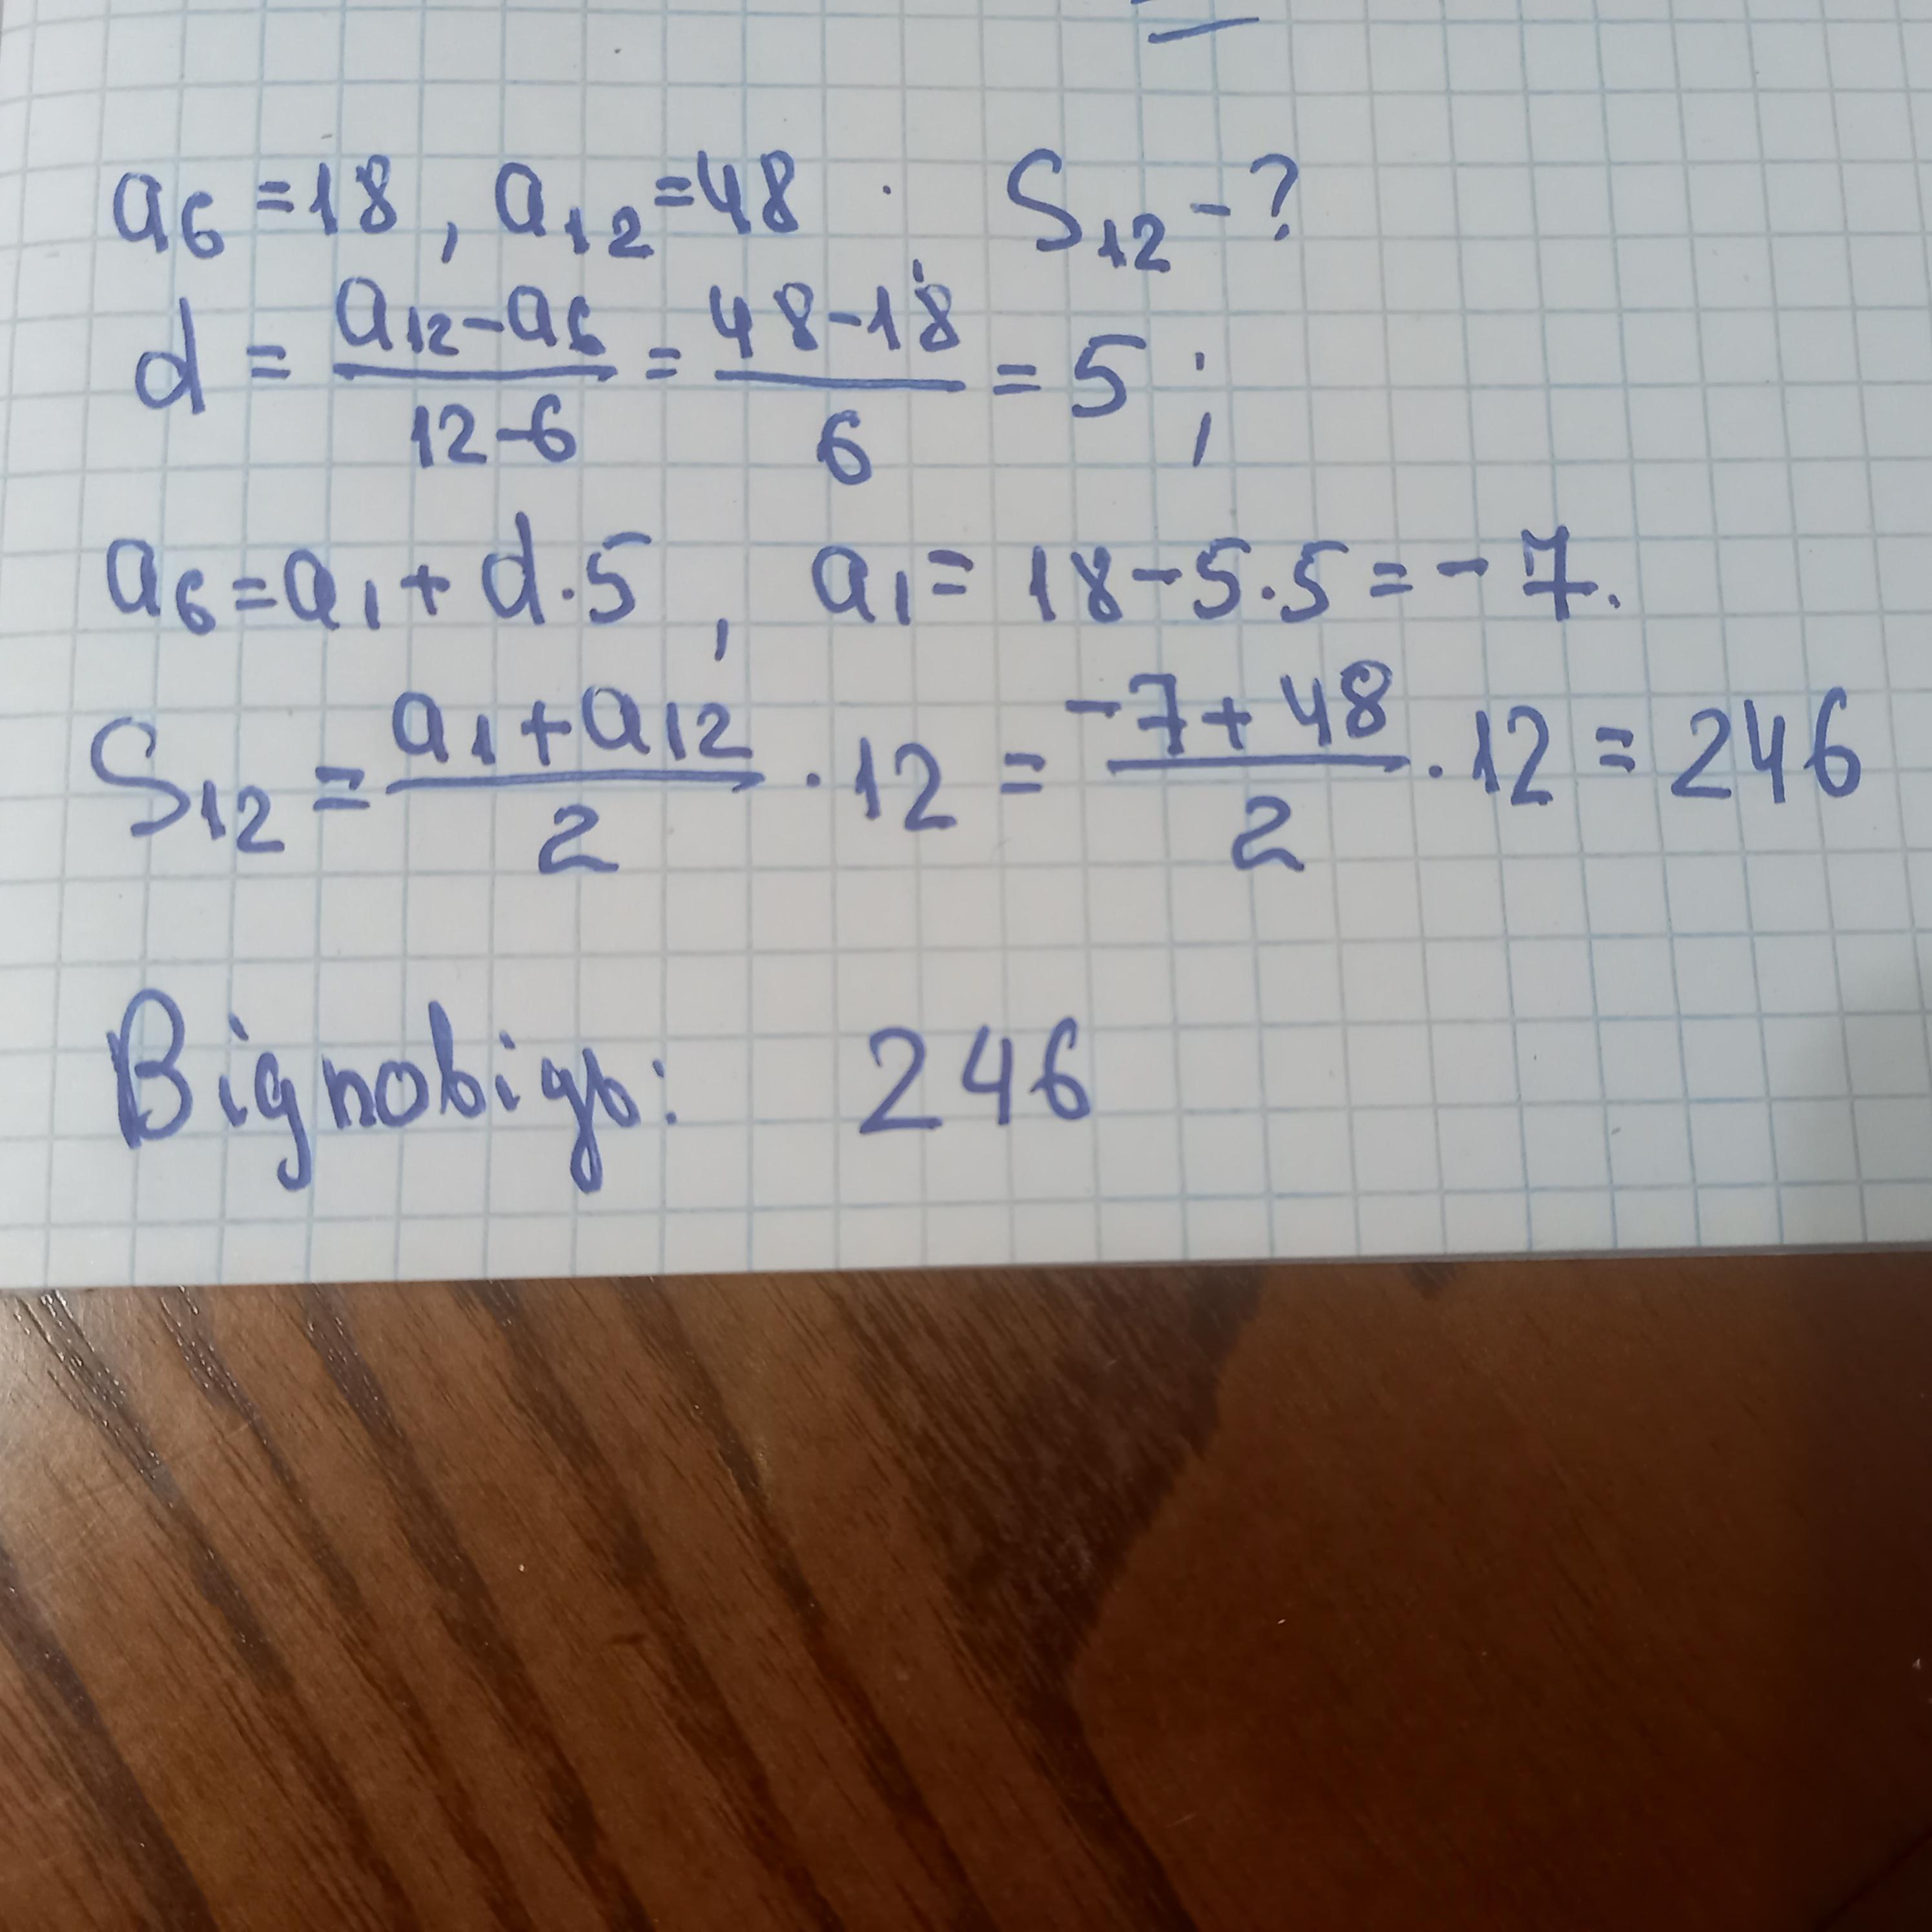 a₆ = 18, a₁₂ = 48 S₁₂ - ?
d = (a₁₂ - a₆)/(12 - 6) = (48 - 18)/6 = 5;
a₆ = a₁ + d · 5, a₁ = 18 - 5 · 5 = -7.
S₁₂ = (a₁ + a₁₂)/2 · 12 = (-7 + 48)/2 · 12 = 246
Відповідь: 246